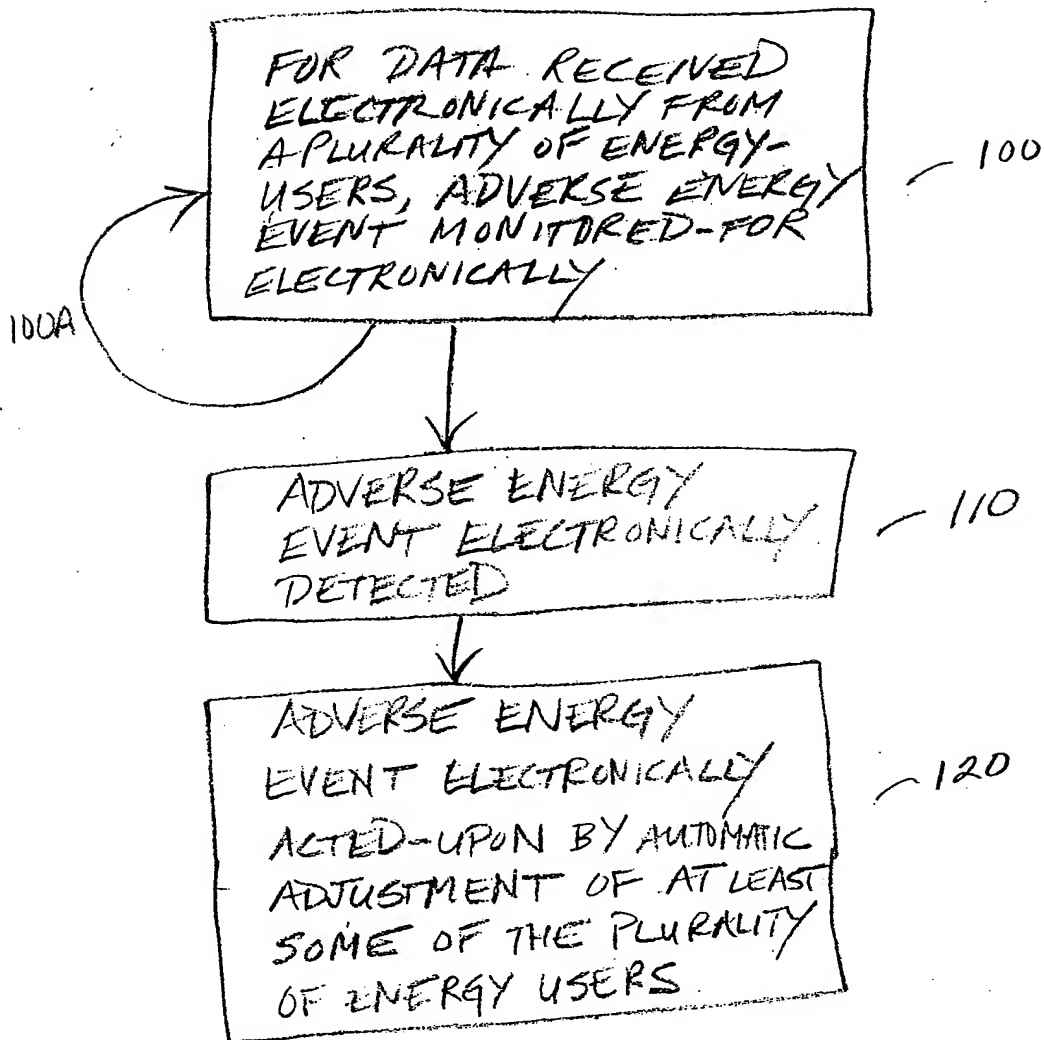 FOR DATA RECEIVED
ELECTRONICALLY FROM
A PLURALITY OF ENERGY-
USERS, ADVERSE ENERGY
EVENT MONITORED-FOR
ELECTRONICALLY
100
100A
ADVERSE ENERGY
EVENT ELECTRONICALLY
DETECTED
110
ADVERSE ENERGY
EVENT ELECTRONICALLY
ACTED-UPON BY AUTOMATIC
ADJUSTMENT OF AT LEAST
SOME OF THE PLURALITY
OF ENERGY USERS
120